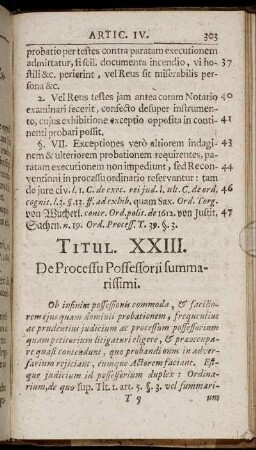 ARTIC. IV. 303
probatio per testes contra paratam executionem
admittatur, si scil. documenta incendio, vi ho- 37
stili &c. perierint, vel Reus sit miserabilis per-
sona &c.
2. Vel Reus testes jam antea coram Notario 40
examinari fecerit, confecto desuper instrumen-
to, cujus exhibitione exceptio opposita in conti- 42
nenti probari possit.
§. VII. Exceptiones verò altiorem indagi- 43
nem & ulteriorem probationem requirentes, pa-
ratam executionem non impediunt, sed Recon- 44
ventioni in processu ordinario reservantur: tam
de jure civ. l. 1. C. de exec. rei jud. l. ult. C. de ord. 46
cognit. l. 3. §. 13. ff. ad exhib, quam Sax. Ord. Torg.
von Wucherl. contr. Ord. polit. de 1612. von Justit. 47
Sachen. n. 19. Ord. Process. T. 39. §. 3.
TITUL. XXIII.
De Processu Possessorii summa-
rissimi.
Ob infinita possessionis commoda, & facilio-
rem ejus quam dominii probationem, frequentius
ac prudentius judicium ac processum possessorium
quam petitorium litigaturi eligere, & præoccupa-
re quasi contendunt, quo probandi onus in adver-
sarium rejiciant, eumque Actorem faciant. Est-
que judicium id possessorium duplex: Ordina-
rium, de quo sup. Tit. 1. art. 5. §. 3. vel summari-
T 5 um